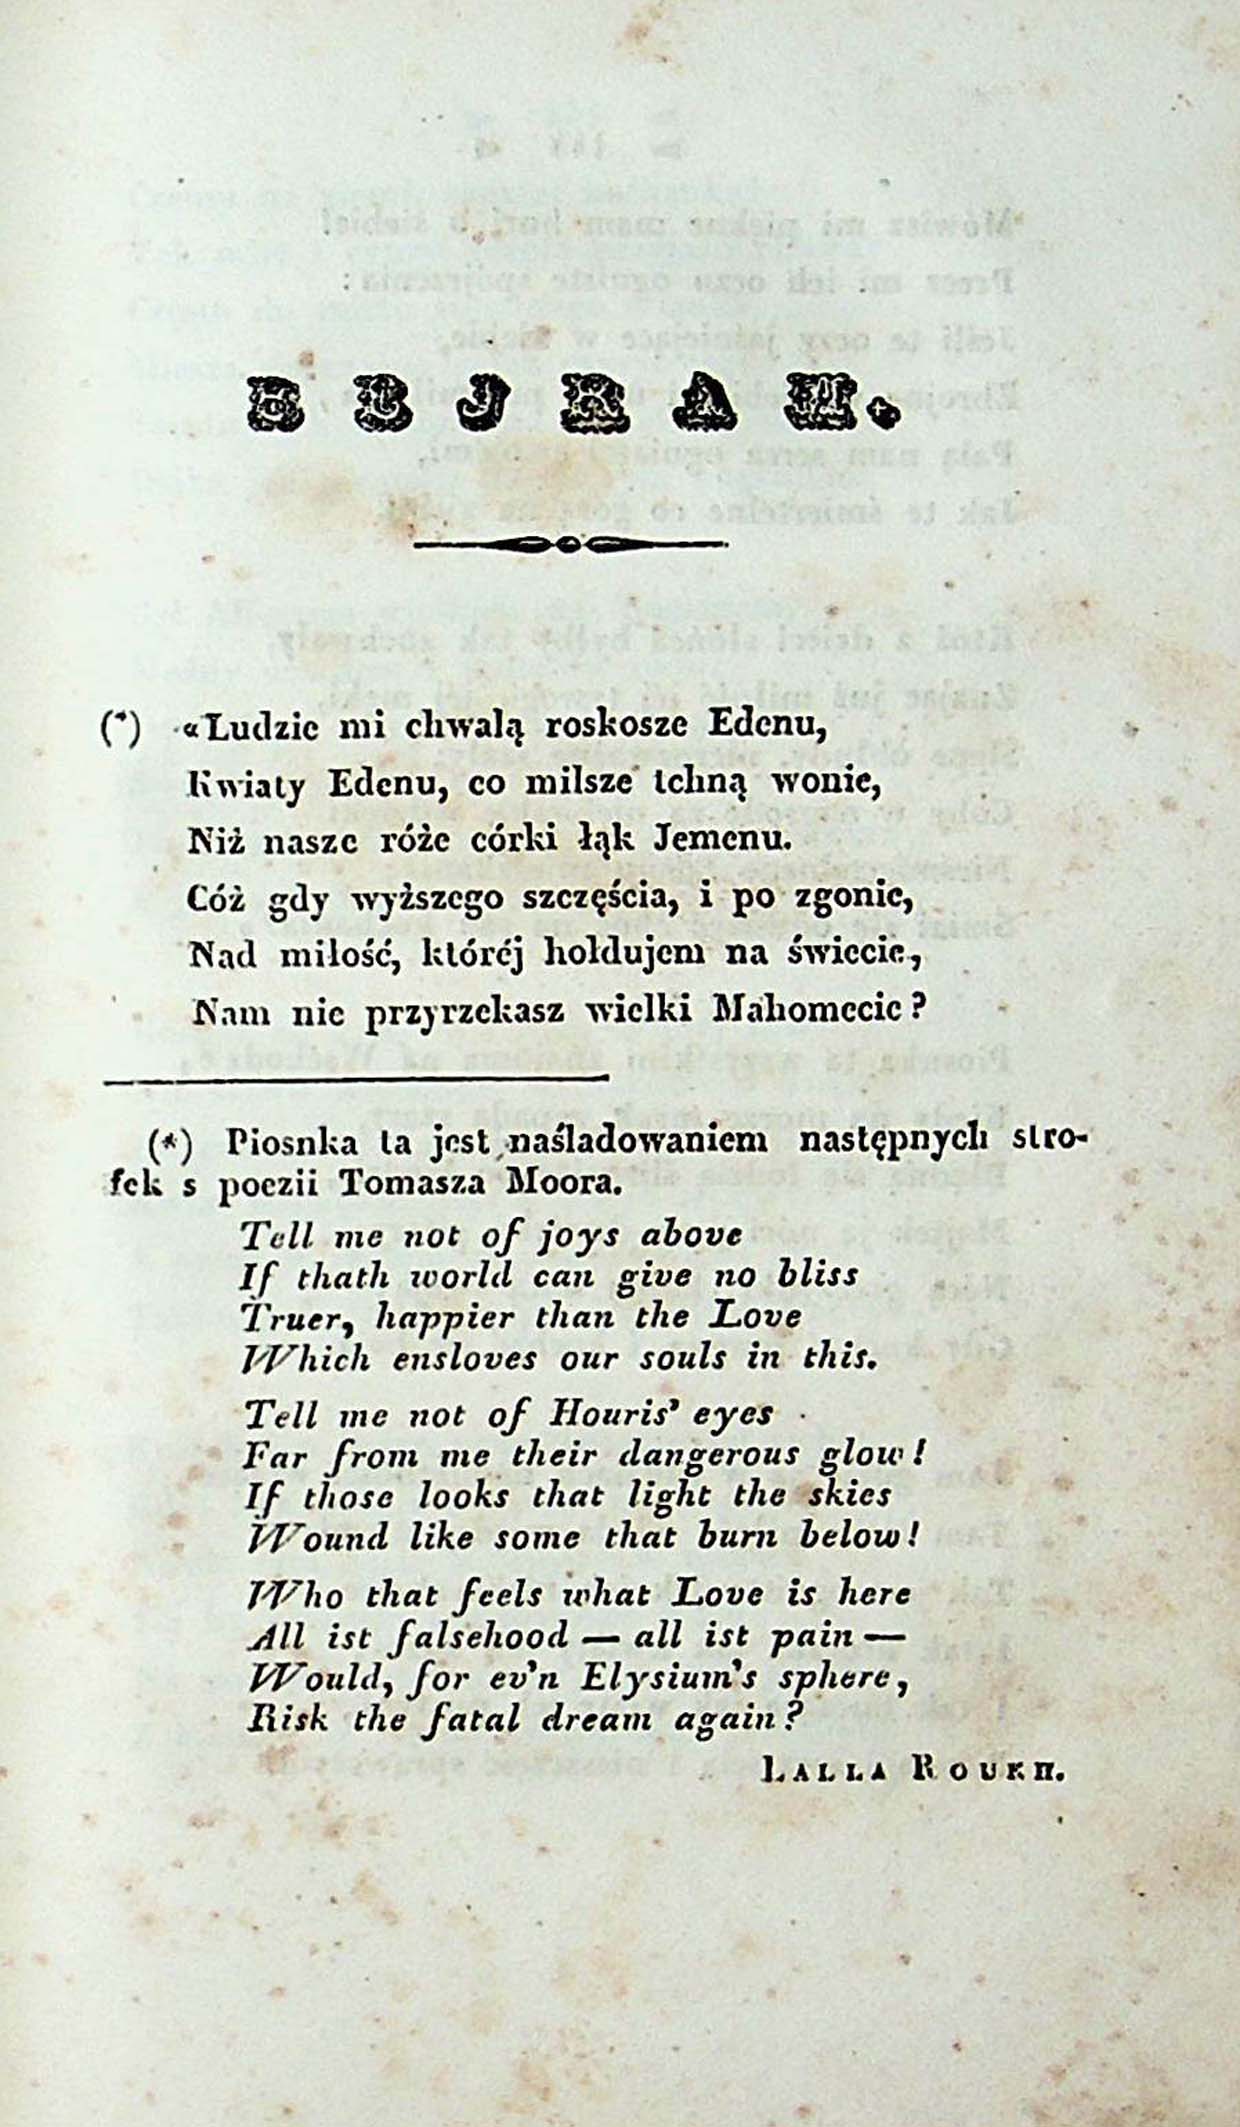 BEJRAM.
(*) «Ludzie mi chwalą roskosze Edenu,
Kwiaty Edenu, co milsze tchną wonie,
Niż nasze róże córki łąk Jemenu.
Cóż gdy wyższego szczęścia, i po zgonie,
Nad miłość, któréj hołdujem na świecie,
Nam nie przyrzekasz wielki Mahomecie?
(*) Piosnka ta jest naśladowaniem następnych stro-
fek s poezii Tomasza Moora.
Tell me not of joys above
If thath world can give no bliss
Truer, happier than the Love
Which ensloves our souls in this.
Tell me not of Houris' eyes
Far from me their dangerous glow!
If those looks that light the skies
Wound like some that burn below!
Who that feels what Love is here
All ist falsehood — all ist pain —
Would, for ev'n Elysium's sphere,
Risk the fatal dream again?
LALLA ROUKH.